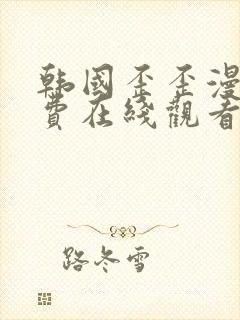 韩国歪歪漫
费在线觀看
路冬雪